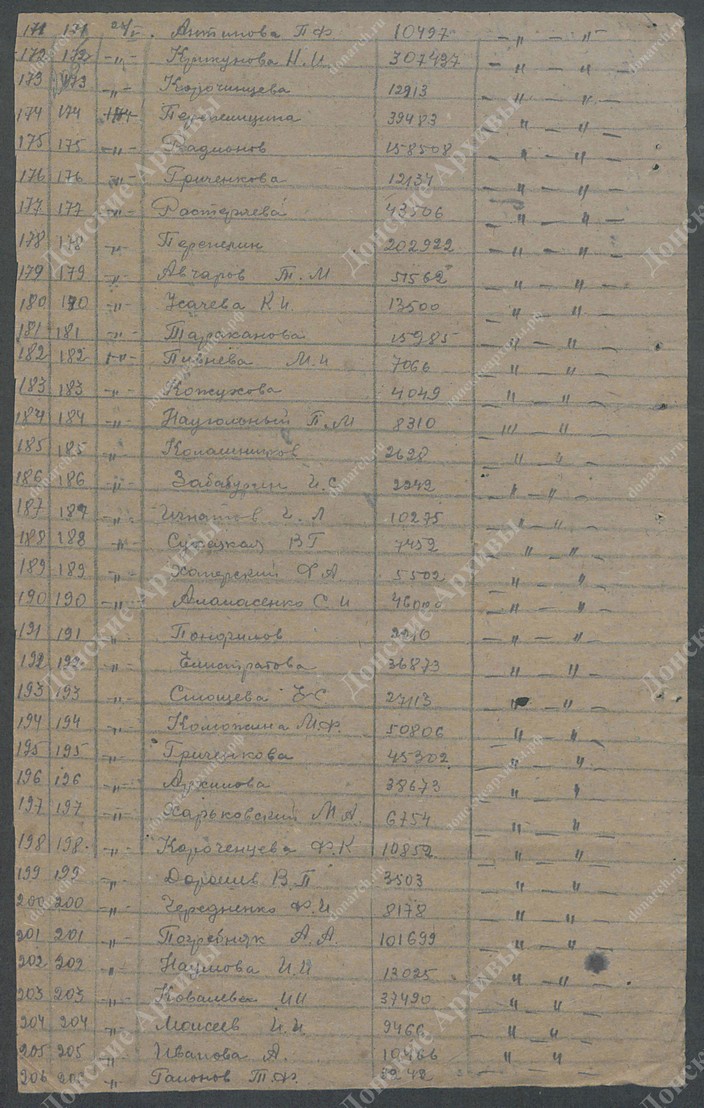 171 171 Антипова П Ф 10497 — " — "
172 172 — " — Крикунова Н. И 307497 — " — "
173 173 — " — Корочинцева 12913 — " — " —
174 174 39483 — " — " —
175 175 — " — Радионов 158508 — " — "
176 176 — " — Гриченкова 12134 — " — " —
177 177 — " — Растеряева 43506 — " — " —
178 178 — " — Перепелин 202922 — " — "
179 179 — " — Авчаров Т. М 51562 — " — "
180 180 — " — Усачева К. И. 13500 — " — "
181 181 — " — Тараканова 15985 — " — "
182 182 — " — Пивнева М. И 7066 — " — "
183 183 — " — Кожухова 4049 — " — "
184 184 — " — Наугольный П. М 8310 — " — "
185 185 — " — Колашников 2628 — " — "
186 186 — " — Забабурин И. С. 2242 — " — "
187 187 — " — Игнатов И. Л 10275 — " — "
188 188 — " — В Г 7452 — " — "
189 189 — " — Хоперский Ф А 5502 — " — "
190 190 — " — Апанасенко С. И — " — "
191 191 " — " — "
192 192 — " — Елистратова 36873 — " — "
193 193 — " — Е. С. 27113 — " — "
194 194 — " — Коможина М. Ф. 50806 — " — "
195 195 — " — Гриченкова 45302 — " — "
196 196 — " — Архипова 38673 — " — "
197 197 — " — Харьковский М А. 6754 — " — "
198 198. — " — Короченцева Ф. К 10852 — " — "
199 199 — " — Дорошев В. П 3503 — " — "
200 200 — " — Чередненко Ф. И 8178 — " — "
201 201 — " — Погребняк А. А. 101699 — " — "
202 202 — " — Наумова И. И 13025 — " — "
203 203 — " — И И 37490 — " — "
204 204 — " — Моисеев И. И 9466 — " — "
205 205 — " — Иванова А. 10466 — " — "
206 " Гапонов Т. Ф.
Донские Архивы
domarch.ru
донскиеархивы.рф